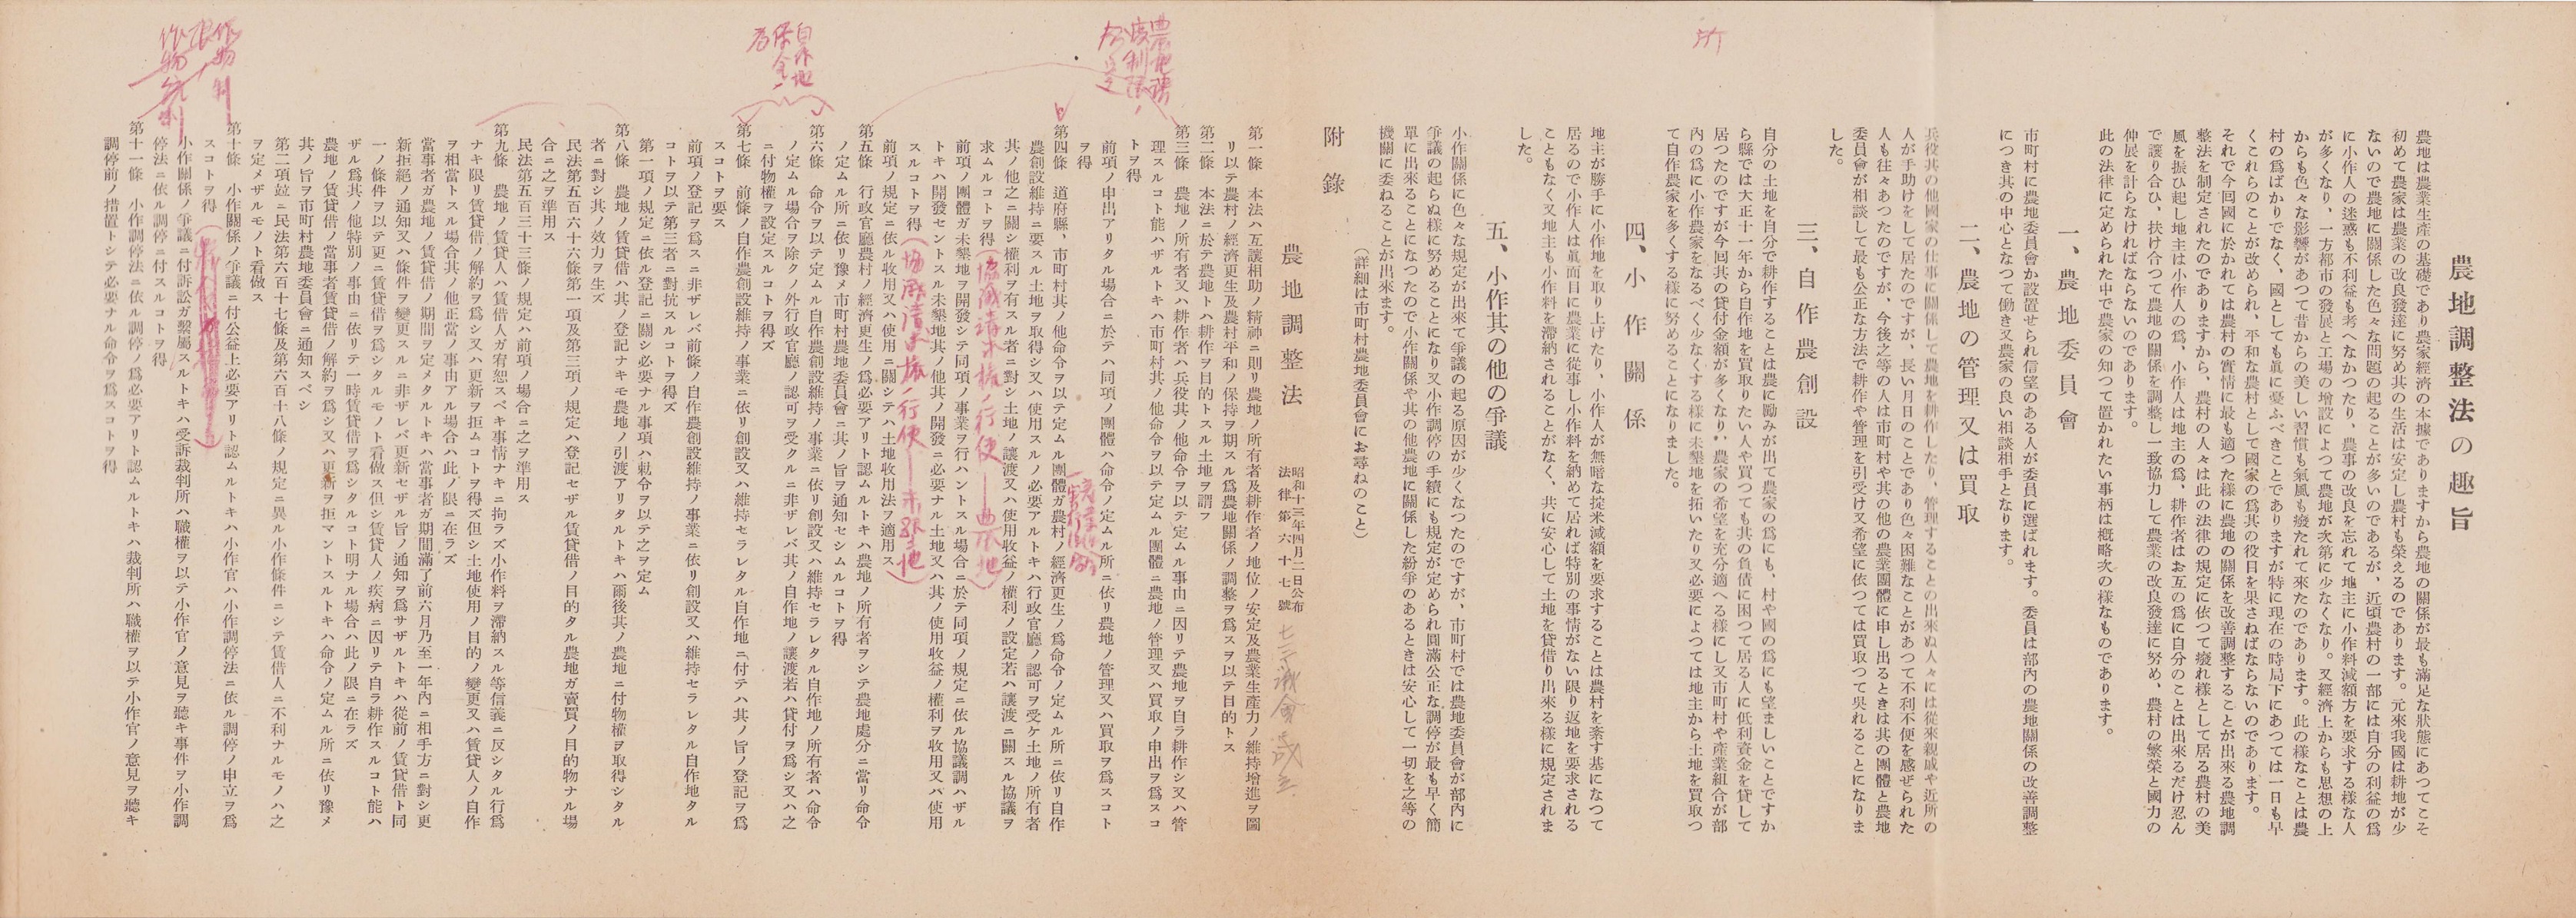 農地調整法の趣旨
農地は農業生產の基礎であり農家經濟の本據でありますから農地の關係が最も滿足な狀態にあつてこそ
初めて農家は農業の改良發達に努め其の生活は安定し農村も榮えるのであります。元來我國は耕地が少
ないので農地に關係した色々な問題の起ることが多いのであるが、近頃農村の一部には自分の利益の爲
に小作人の迷惑も不利益も考へなかつたり、農事の改良を忘れて地主に小作料減額方を要求する樣な人
が多くなり、一方都市の發展と工場の增設によつて農地が次第に少なくなり。又經濟上からも思想の上
からも色々な影響があつて昔からの美しい習慣も氣風も癈たれて來たのであります。此の樣なことは農
村の爲ばかりでなく、國としても眞に憂ふべきことでありますが特に現在の時局下にあつては一日も早
くこれらのことが改められ、平和な農村として國家の爲其の役目を果さねばならないのであります。
それで今回國に於かれては農村の實情に最も適つた樣に農地の關係を改善調整することが出來る農地調
整法を制定されたのでありますから、農村の人々は此の法律の規定に依つて癈れ樣として居る農村の美
風を振ひ起し地主は小作人の爲、小作人は地主の爲、耕作者はお互の爲に自分のことは出來るだけ忍ん
で讓り合ひ、扶け合つて農地の關係を調整し一致協力して農業の改良發達に努め、農村の繁榮と國力の
伸展を計らなければならないのであります。
此の法律に定められた中で農家の知つて置かれたい事柄は槪略次の樣なものであります。
一、農地委員會
市町村に農地委員會か設置せられ信望のある人が委員に選ばれます。委員は部內の農地關係の改善調整
につき其の中心となつて働き又農家の良い相談相手となります。
二、農地の管理又は買取
兵役其の他國家の仕事に關係して農地を耕作したり、管理することの出來ぬ人々には從來親戚や近所の
人が手助けをして居たのですが、長い月日のことであり色々困難なことがあつて不利不便を感ぜられた
人も往々あつたのですが、今後之等の人は市町村や其の他の農業團體に申し出るときは其の團體と農地
委員會が相談して最も公正な方法で耕作や管理を引受け又希望に依つては買取つて吳れることになりま
した。
三、自作農創設
自分の土地を自分で耕作することは農に勵みが出て農家の爲にも、村や國の爲にも望ましいことですか
ら縣では大正十一年から自作地を買取りたい人や買つても其の負債に困つて居る人に低利資金を貸して
居つたのですが今回其の貸付金額が多くなり、農家の希望を充分適へる樣にし又市町村や產業組合が部
內の爲に小作農家をなるべく少なくする樣に未墾地を拓いたり又必要によつては地主から土地を買取つ
て自作農家を多くする樣に努めることになりました。
四、小作關係
地主が勝手に小作地を取り上げたり、小作人が無暗な掟米減額を要求することは農村を紊す基になつて
居るので小作人は眞面目に農業に從事し小作料を納めて居れば特別の事情がない限り返地を要求される
こともなく又地主も小作料を滯納されることがなく、共に安心して土地を貸借り出來る樣に規定されま
した。
五、小作其の他の爭議
小作關係に色々な規定が出來て爭議の起る原因が少くなつたのですが、市町村では農地委員會が部內に
爭議の起らぬ樣に努めることになり又小作調停の手續にも規定が定められ圓滿公正な調停が最も早く簡
單に出來ることになつたので小作關係や其の他農地に關係した紛爭のあるときは安心して一切を之等の
機關に委ねることが出來ます。
(詳細は市町村農地委員會にお尋ねのこと)
附錄
農地調整法
昭和十三年四月二日公布
法律第六十七號
第一條 本法ハ互讓相助ノ精神ニ則リ農地ノ所有者及耕作者ノ地位ノ安定及農業生產力ノ維持增進ヲ圖
リ以テ農村ノ經濟更生及農村平和ノ保持ヲ期スル爲農地關係ノ調整ヲ爲スヲ以テ目的トス
第二條 本法ニ於テ農地トハ耕作ヲ目的トスル土地ヲ謂フ
第三條 農地ノ所有者又ハ耕作者ハ兵役其ノ他命令ヲ以テ定ムル事由ニ因リテ農地ヲ自ラ耕作シ又ハ管
理スルコト能ハザルトキハ市町村其ノ他命令ヲ以テ定ムル團體ニ農地ノ管理又ハ買取ノ申出ヲ爲スコ
トヲ得
前項ノ申出アリタル場合ニ於テハ同項ノ團體ハ命令ノ定ムル所ニ依リ農地ノ管理又ハ買取ヲ爲スコト
ヲ得
第四條 道府縣、市町村其ノ他命令ヲ以テ定ムル團體ガ農村ノ經濟更生ノ爲命令ノ定ムル所ニ依リ自作
農創設維持ニ要スル土地ヲ取得シ又ハ使用スルノ必要アルトキハ行政官廳ノ認可ヲ受ケ土地ノ所有者
其ノ他之ニ關シ權利ヲ有スル者ニ對シ土地ノ讓渡又ハ使用收益ノ權利ノ設定若ハ讓渡ニ關スル協議ヲ
求ムルコトヲ得
前項ノ團體ガ未墾地ヲ開發シテ同項ノ事業ヲ行ハントスル場合ニ於テ同項ノ規定ニ依ル協議調ハザル
トキハ開發セントスル未墾地其ノ他其ノ開發ニ必要ナル土地又ハ其ノ使用收益ノ權利ヲ收用又ハ使用
スルコトヲ得
前項ノ規定ニ依ル收用又ハ使用ニ關シテハ土地收用法ヲ適用ス
第五條 行政官廳農村ノ經濟更生ノ爲必要アリト認ムルトキハ農地ノ所有者ヲシテ農地處分ニ當リ命令
ノ定ムル所ニ依リ豫メ市町村農地委員會ニ其ノ旨ヲ通知セシムルコトヲ得
第六條 命令ヲ以テ定ムル自作農創設維持ノ事業ニ依リ創設又ハ維持セラレタル自作地ノ所有者ハ命令
ノ定ムル場合ヲ除クノ外行政官廳ノ認可ヲ受クルニ非ザレバ其ノ自作地ノ讓渡若ハ貸付ヲ爲シ又ハ之
ニ付物權ヲ設定スルコトヲ得ズ
第七條 前條ノ自作農創設維持ノ事業ニ依リ創設又ハ維持セラレタル自作地ニ付テハ其ノ旨ノ登記ヲ爲
スコトヲ要ス
前項ノ登記ヲ爲スニ非ザレバ前條ノ自作農創設維持ノ事業ニ依リ創設又ハ維持セラレタル自作地タル
コトヲ以テ第三者ニ對抗スルコトヲ得ズ
第一項ノ規定ニ依ル登記ニ關シ必要ナル事項ハ勅令ヲ以テ之ヲ定ム
第八條 農地ノ賃貸借ハ其ノ登記ナキモ農地ノ引渡アリタルトキハ爾後其ノ農地ニ付物權ヲ取得シタル
者ニ對シ其ノ效力ヲ生ズ
民法第五百六十六條第一項及第三項ノ規定ハ登記セザル賃貸借ノ目的タル農地ガ賣買ノ目的物ナル場
合ニ之ヲ準用ス
民法第五百三十三條ノ規定ハ前項ノ場合ニ之ヲ準用ス
第九條 農地ノ賃貸人ハ賃借人ガ宥恕スベキ事情ナキニ拘ラズ小作料ヲ滯納スル等信義ニ反シタル行爲
ナキ限リ賃貸借ノ解約ヲ爲シ又ハ更新ヲ拒ムコトヲ得ズ但シ土地使用ノ目的ノ變更又ハ賃貸人ノ自作
ヲ相當トスル場合其ノ他正當ノ事由アル場合ハ此ノ限ニ在ラズ
當事者ガ農地ノ賃貸借ノ期間ヲ定メタルトキハ當事者ガ期間滿了前六月乃至一年內ニ相手方ニ對シ更
新拒絕ノ通知又ハ條件ヲ變更スルニ非ザレバ更新セザル旨ノ通知ヲ爲サザルトキハ從前ノ賃貸借ト同
一ノ條件ヲ以テ更ニ賃貸借ヲ爲シタルモノト看做ス但シ賃貸人ノ疾病ニ因リテ自ラ耕作スルコト能ハ
ザル爲其ノ他特別ノ事由ニ依リテ一時賃貸借ヲ爲シタルコト明ナル場合ハ此ノ限ニ在ラズ
農地ノ賃貸借ノ當事者賃貸借ノ解約ヲ爲シ又ハ更新ヲ拒マントスルトキハ命令ノ定ムル所ニ依リ豫メ
其ノ旨ヲ市町村農地委員會ニ通知スベシ
第二項竝ニ民法第六百十七條及第六百十八條ノ規定ニ異ル小作條件ニシテ賃借人ニ不利ナルモノハ之
ヲ定メザルモノト看做ス
第十條 小作關係ノ爭議ニ付公益上必要アリト認ムルトキハ小作官ハ小作調停法ニ依ル調停ノ申立ヲ爲
スコトヲ得
小作關係ノ爭議ニ付訴訟ガ繫屬スルトキハ受訴裁判所ハ職權ヲ以テ小作官ノ意見ヲ聽キ事件ヲ小作調
停法ニ依ル調停ニ付スルコトヲ得
第十一條 小作調停法ニ依ル調停ノ爲必要アリト認ムルトキハ裁判所ハ職權ヲ以テ小作官ノ意見ヲ聽キ
調停前ノ措置トシテ必要ナル命令ヲ爲スコトヲ得